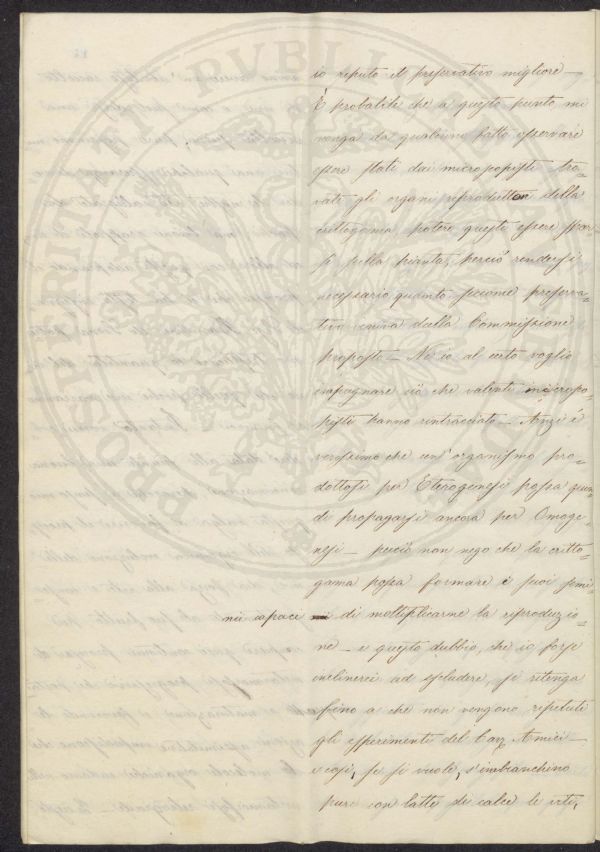 PROSPERITATI PVBLI
io reputo il preservativo migliore –
È probabile che a questo punto mi
venga da qualcuno fatto osservare
essere stati dai micropopisti tro-
vati gli organi reproduttori della
crittogama, potere questi essere spar-
si sulla pianta; perciò rendersi
necessario quanto siccome preserva-
tivo veniva dalla Commissione
proposto – Nè io al certo voglio
impugnare ciò che valenti micropo-
pisti hanno rintracciato – Anzi è
verissimo che un'organismo pro-
dottosi per Eterogenesi possa quin-
di propagarsi ancora per Omoge-
nesi – perciò non nego che la critto-
gama possa formare i suoi semi-
nii capaci di moltiplicarne la riproduzio-
ne – e questo dubbio, che io forse
inclinerei ad escludere, si ritenga
fino a che non vengono ripetuti
gli esperimenti del Amici –
e così, se si vuole, s'imbianchino
pure con latte di calce le viti,